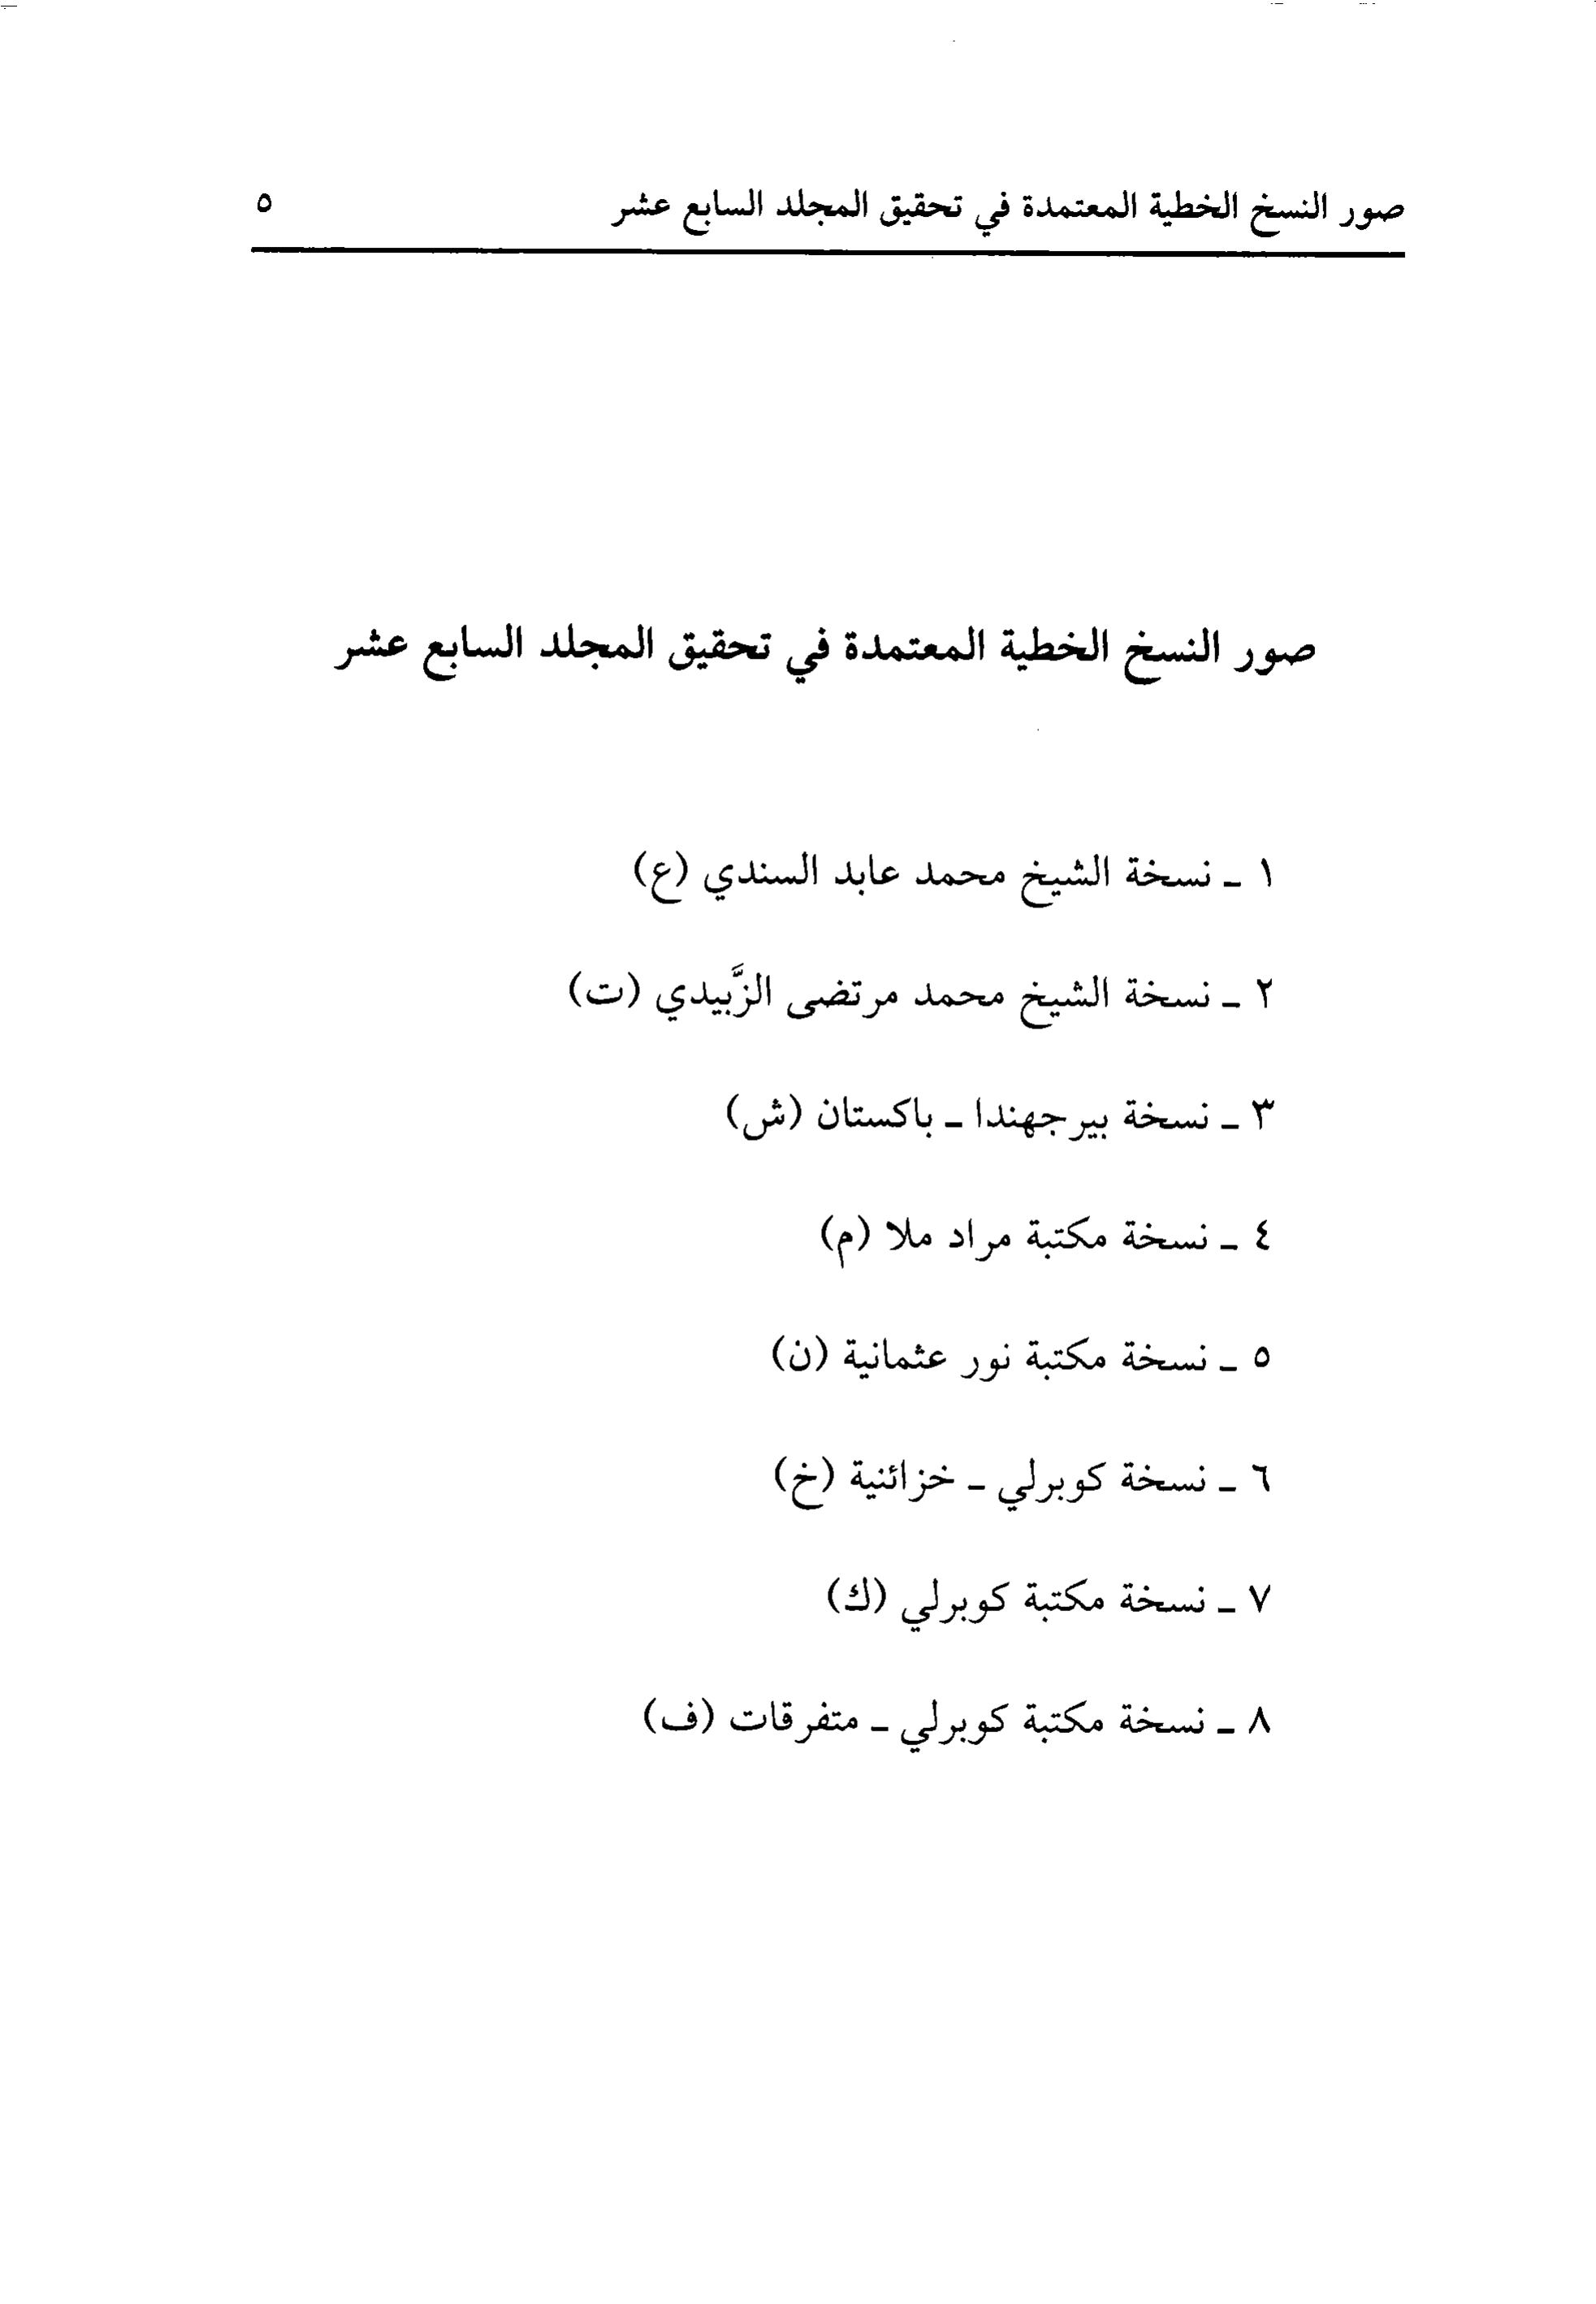 صور النسخ الخطية المعتمدة في تحقيق المجلد السابع عشر ٥
صور النسخ الخطية المعتمدة في تحقيق المجلد السابع عشر
١ ـ نسخة الشيخ محمد عابد السندي (ع)
٢ ـ نسخة الشيخ محمد مرتضى الزَّبيدي (ت)
٣ ـ نسخة بيرجهندا ـ باكستان (ش)
٤ ـ نسخة مكتبة مراد ملا (م)
٥ ـ نسخة مكتبة نور عثمانية (ن)
٦ ـ نسخة كوبرلي ـ خزائنية (خ)
٧ ـ نسخة مكتبة كوبرلي (ك)
٨ ـ نسخة مكتبة كوبرلي ـ متفرقات (ف)